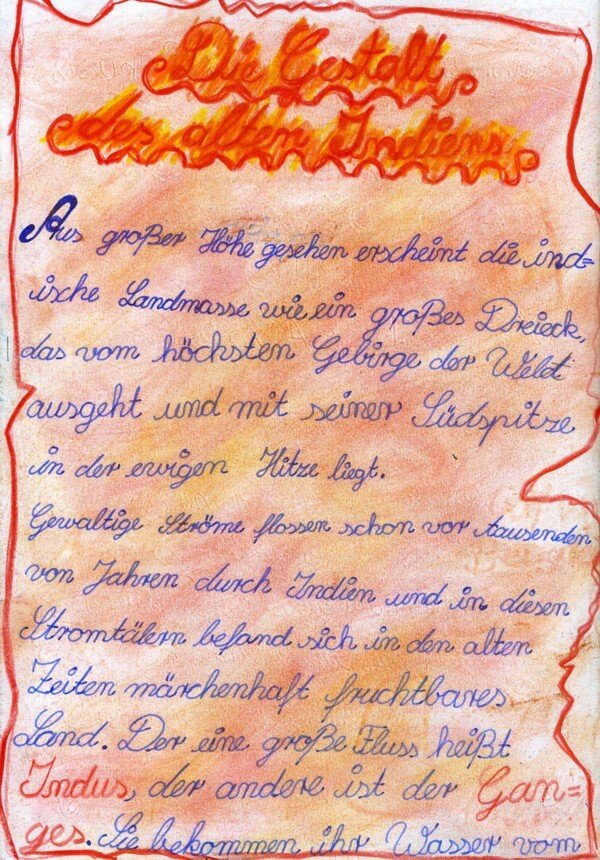 Die Gestalt
des alten Indiens
Aus großer Höhe gesehen erscheint die ind=
ische Landmasse wie ein großes Dreieck,
das vom höchsten Gebirge der Welt
ausgeht und mit seiner Südspitze
in der ewigen Hitze liegt.
Gewaltige Ströme flossen schon vor tausenden
von Jahren durch Indien und in diesen
Stromtälern befand sich in den alten
Zeiten märchenhaft fruchtbares
Land. Der eine große Fluss heißt
Indus, der andere ist der Gan=
ges. Sie bekommen ihr Wasser vom